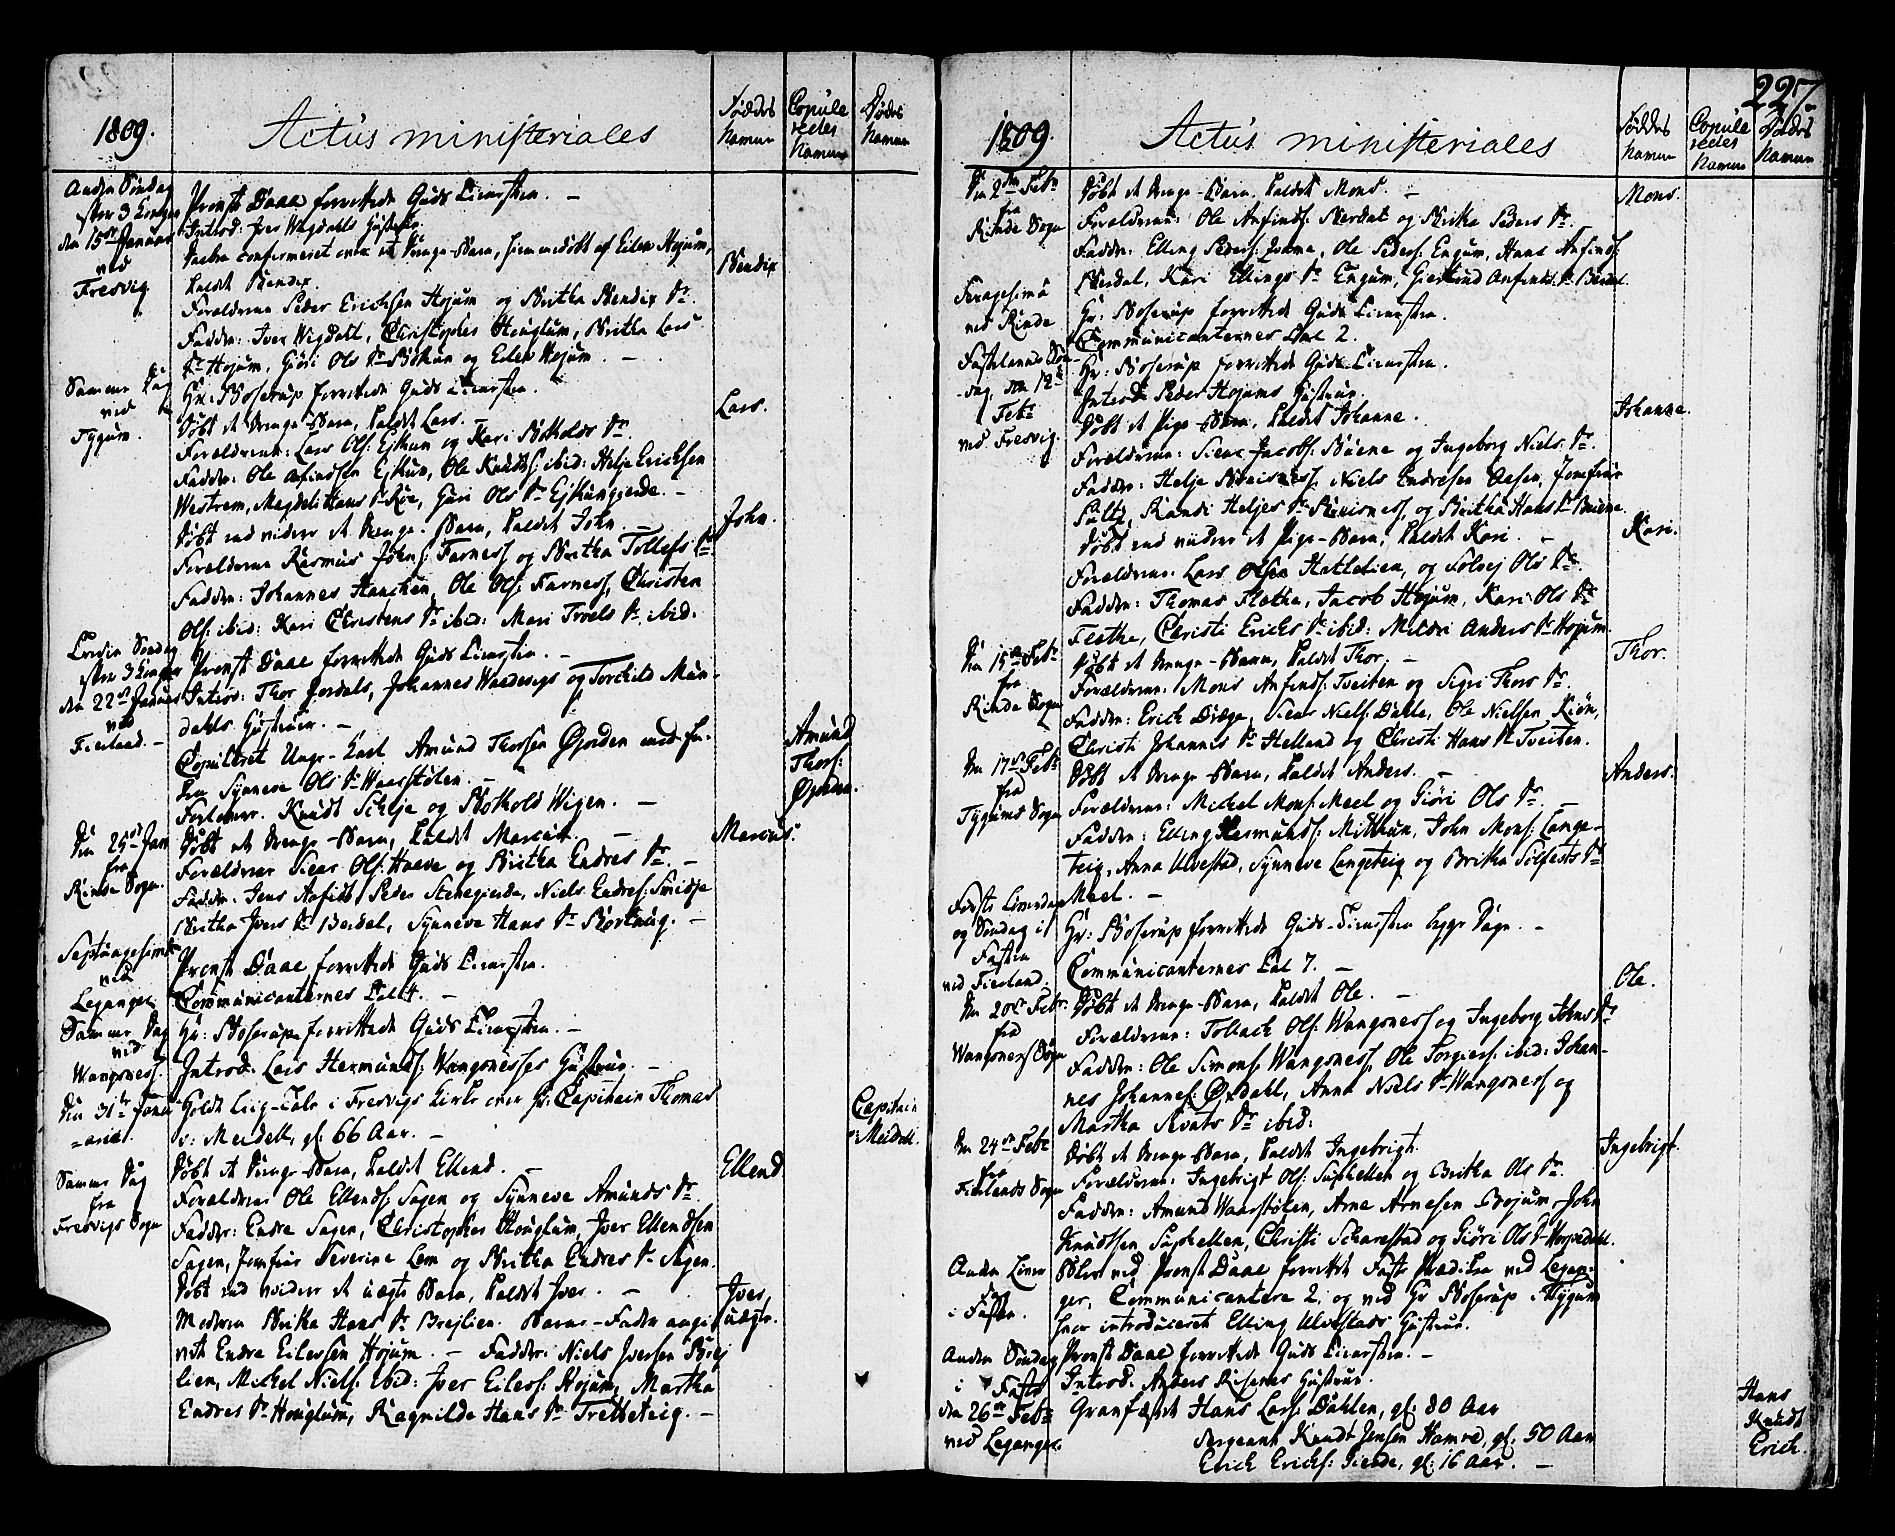 1809.
Actus ministeriales
Fødde Namn
Copulerede Namn
Døde Namn
Anden Søndag
efter 3 Konger
den 15de Januar
ved
Fresvig
Provst Daae forrettede Guds Tienesten. –
Introd: Iver Wigdahls Hustrue.
Daaben confirmeret over et Drenge-Barn, hiemmedøbt af Eiler Hojum,
kaldet Bendix.
Forældrene Peder Erichsen Hojum og Britha Bendix Dr.
Faddere: Iver Wigdahl, Christopher Houglum, Britha Lars
Dr Hojum, Giøri Ols Dr Bøthun og Eiler Hojum. –
Bendix
Samme Dag
ved
Tygum.
Hr: Boserup forrettede Guds Tienesten.
Døbt et Drenge-Barn, kaldet Lars.
Forældrene: Lars Ols: Ejthun og Kari Botholds Dr.
Faddere: Ole Anfindsen Ejthun, Ole Knudss: ibid: Helje Erichsen
Westrem, Magdeli Hans Dr Røe, Guri Ols Dr Ejthungierde. –
Lars.
Døbt end videre et Drenge-Barn, kaldet John. –
Forældrene Rasmus Johns: Farness og Britha Tollefs Dr
Faddere: Johannes Haneken, Ole Ols: Farness, Christen
Ols: ibid: Kari Christens Dr ibid: Mari Troels Dr ibid:
John.
Tredie Søndag
efter 3 Konger
den 22de Januar
ved
Fierland. –
Provst Daae forrettede Guds Tienesten. –
Introd: Thor Jordals, Johannes Waadesigs og Torchild Mun-
dahls Hustruer. –
Copuleret Unge-Karl Amund Thorsen Øjorden med En-
ken Synneve Ols Dr Waarstølen. –
Forlovere. Knudt Schelje og Bothold Wigen. –
Amund
Thors:
Øjorden.
Den 25de Jan
fra
Rinde Sogn.
Døbt et Drenge-Barn, kaldet Marcus. –
Forældrene Siear Ols: Haave og Britha Endres Dr. –
Faddere: Jens Anfids: Peder Stenegierde, Niels Endres: Smidje
Britha Ivers Dr Berdal, Synneve Hans Dr Bortnig. –
Marcus.
Septuagesima
ved
Leganger
Provst Daae forrettede Guds Tienesten.
Communicanternes Tal 4. –
Samme Dag
ved
Wangsness.
Hr: Boserup forrettede Guds Tienesten. –
Introd: Lars Hermunds: Wangsnesses Hustrue. –
Den 31te Janu-
arii.
Holdt Liig-Tale i Fresvigs Kirke over Hr: Capitain Thomas
v: Meidell, gl: 66 Aar. –
Capitain
v: Meidell.
Samme Dag
fra
Fresvigs Sogn
Døbt et Drenge-Barn, kaldet Ellend. –
Forældrene Ole Ellends: Sagen og Synneve Amunds Dr.
Faddere: Endre Sagen, Christopher Houglum, Iver Ellendsen
Sagen, Jomfrue Severine Lem og Britha Endres Dr Sagen.
Ellend
Døbt end videre et uægte Barn, kaldet Iver. –
Moderen Britha Hans Dr Brejlien. Barne-Fader angi-
vet Endre Eilersen Hojum. – Faddere: Niels Iversen Brej
lien, Michel Niels: ibid: Iver Eilers: Hojum, Martha
Endres Dr Houglum, Ragnilde Hans Dr Tretteteig. –
Iver,
uægte.
227.
1809.
Actus ministeriales
Fødde Namn
Copulerede Namn
Døde Namn
Den 2den Febr
fra
Rinde Sogn
Døbt et Drenge-Barn, kaldet Mons. –
Forældrene: Ole Anfinds: Berdal og Britha Peders Dr.
Faddere: Elling Peders: Øvme, Ole Peders: Engum, Hans Anfinds:
Berdal, Kari Ellings Dr Engum, Giertrud Anfinds Dr Berdal.
Mons.
Sexagesima
ved Rinde
Hr: Boserup forrettede Guds Tienesten.
Communicanternes Tal 2.
Fastelavns Søn-
dag, den 12te
Febr
ved Fresvig.
Hr: Boserup forrettede Guds Tienesten.
Introd: Peder Hojums Hustrue.
Døbt et Pige-Barn, kaldet Johanne.
Forældrene: Siear Jacobs: Buene og Ingeborg Niels Dr.
Faddere: Helje Breisness, Niels Endresen Aasen, Jomfrue
Pultz, Randi Heljes Dr Breisness, og Britha Hans Dr Buene.
Johanne.
Døbt end videre et Pige-Barn, kaldet Kari. –
Forældrene: Lars Olsen Hatlelien, og Solvej Ols Dr.
Faddere: Thomas Flethe, Jacob Hojum, Kari Ols Dr
Flethe, Christi Erichs Dr ibid: Mildri Anders Dr Hojum.
Kari.
Den 15de Febr
fra
Rinde Sogn
Døbt et Drenge-Barn, kaldet Thor. –
Forældrene: Mons Anfinds: Tveiten og Sigri Thors Dr.
Faddere: Erich Dræge, Siear Niels: Dalle, Ole Nielsen Riøn,
Christi Johannis Dr Helland og Christi Hans Dr Tveiten.
Thor.
Den 17de Febr
fra
Tygums Sogn
Døbt et Drenge-Barn, kaldet Anders. –
Forældrene: Michel Mons: Meel og Giøri Ols Dr. –
Faddere: Elling Hermunds: Midthun, John Mons: Lange-
teig, Anna Ulvestad, Synneve Langeteig og Britha Silfests Dr
Meel. –
Anders.
Første Tirsdag
og Søndag i
Fasten
ved Fierland.
Hr: Boserup forrettede Guds-Tienesten begge Dage. –
Communicanternes Tal 7. –
Den 20de Febr.
fra
Wangsness Sogn
Døbt et Drenge-Barn, kaldet Ole. –
Forældrene: Tollach Ols: Wangsness og Ingeborg Johns Dr
Faddere: Ole Simons: Wangsness, Ole Torgiers: ibid: Johan-
nes Johannes: Øxdahl, Anna Niels Dr Wangsness og
Martha Sivats Dr ibid:
Ole.
Den 24de Febr
fra
Fierlands Sogn
Døbt et Drenge-Barn, kaldet Ingebrigt.
Forældrene: Ingebrigt Ols: Suphellen og Britha Ols Dr.
Faddere: Amund Waarstølen, Arne Arnesen Bojum, John
Knudtsen Suphellen, Christi Scharestad og Giøri Ols Dr Horpedall.
Ingebrigt.
Anden Tirsdag
i Fasten.
Blev ved Provst Daae forrettet Faste Prædiken ved Legan-
ger, Communicantere 2, og ved Hr Boserup i Tygum
hvor introduceret Elling Ulvestads Hustrue.
Anden Søndag
i Faste
den 26de Febr
ved Leganger.
Provst Daae forrettede Guds Tienesten. –
Introd: Anders Risenes Hustrue.
Granfæstet Hans Lars: Dahlen, gl: 80 Aar
Sergeant Knudt Jensen Hamre, gl: 50 Aar
Erich Erichs: Gierde, gl: 16 Aar. –
Hans
Knudt
Erich.